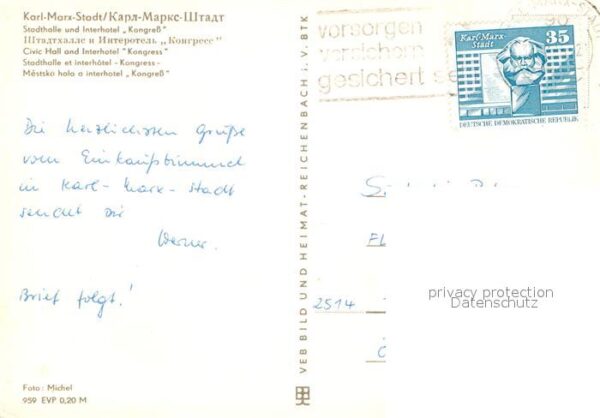 Karl-Marx-Stadt/Карл-Маркс-Штадт
Stadthalle und Interhotel „Kongreß"
Штадтхалле и Интеротель „Конгресс"
Civic Hall and Interhotel "Kongress"
Stadthalle et interhôtel -Kongress-
Městska hala a interhotel „Kongreß"
Die herzlichsten Grüße
vom Einkaufsbummel
in Karl-Marx-Stadt
sendet Dir
Werner.
Brief folgt!
Foto: Michel
959 EVP 0,20 M
VEB BILD UND HEIMAT · REICHENBACH i. V. BTK
vorsorgen
versichern
gesichert
Karl-Marx-
Stadt
35
DEUTSCHE DEMOKRATISCHE REPUBLIK
2514
privacy protection
Datenschutz